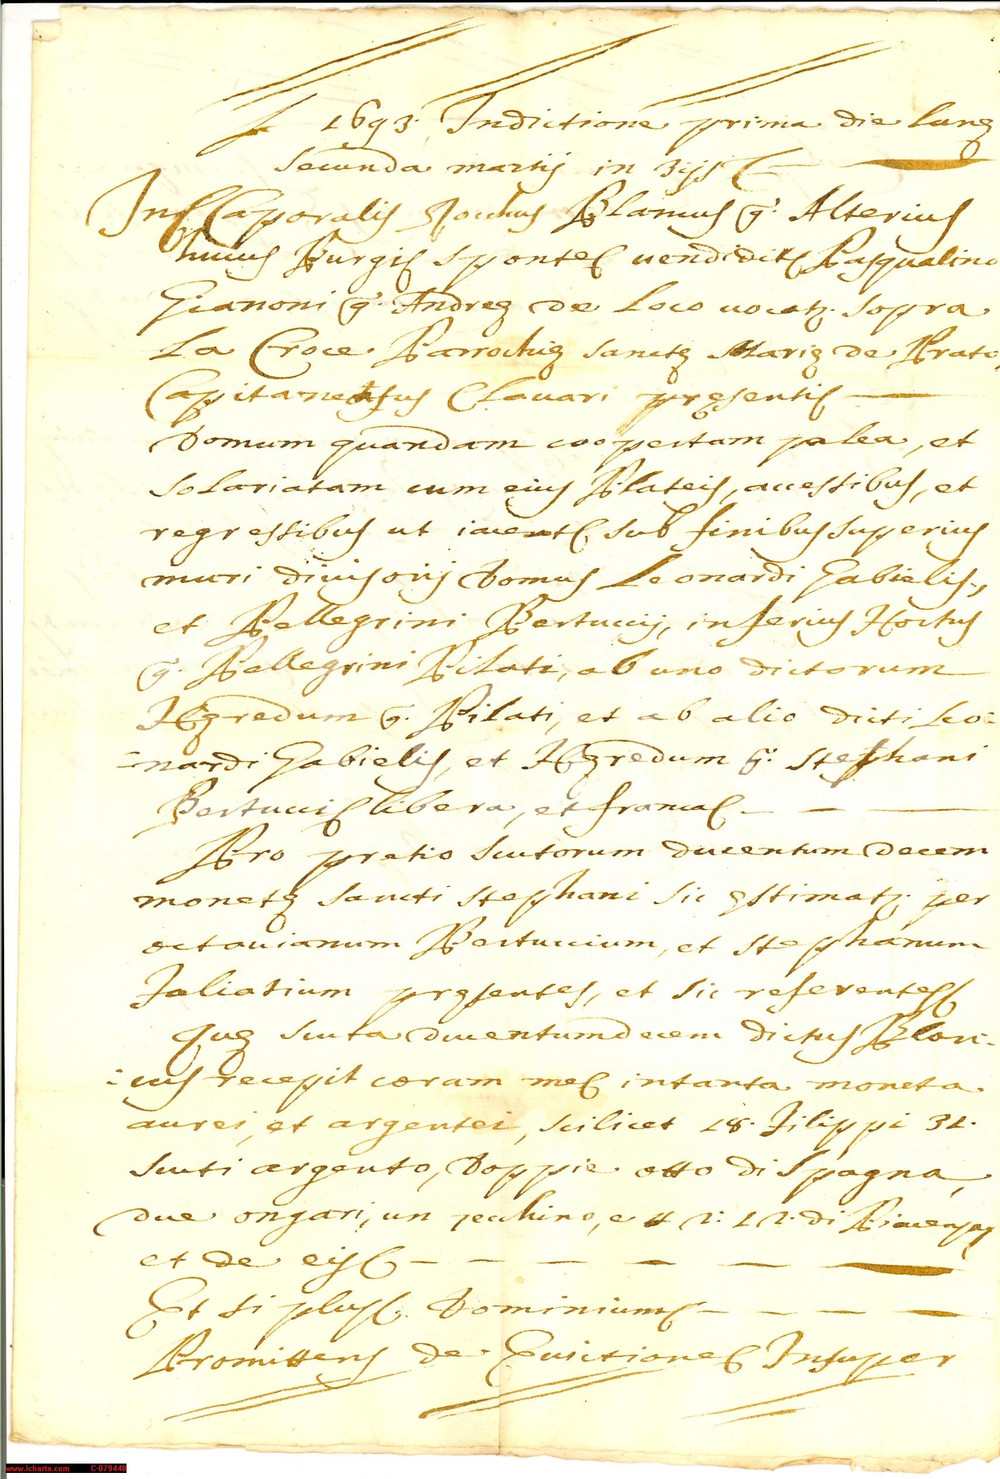 1693. Indictione prima die lunę
secunda martij in 3ijs
Caporalis Rocchus Blancus q. Alterius
huius Burgi sponte vendidit Pasqualino
Gianoni q. Andreę de Loco vocat. sopra
La Croce Parrochię sanctę Marię de Prato,
Capitaneatus Clavari pręsentis
Domum quandam coopertam palea, et
solariatam cum eius Plateis, accessibus, et
regressibus ut iacent sub finibus superius
muri divisorij Domus Leonardi Gabielis,
et Pellegrini Bertuccij, inferius Hortus
q. Pellegrini Pilati, ab uno dictorum
Hęredum q. Pilati, et ab alio dicti Leo-
nardi Gabielis, et Hęredum q. Stephani
Bertucci libera, et franca
Pro pretio scutorum ducentum decem
monetę sancti stephani sic ęstimat. per
octavianum Bertuccium, et stephanum
Taliatium pręsentes, et sic referentes
Quę scuta ducentumdecem dictus Blan-
cus recepit coram me in tanta moneta
aurei, et argentei, scilicet 18. Filippi 31.
scuti argento, Doppie otto di spagna,
due ongari, un zecchino, e di
et de eis
Et si plus. Dominium
Promittens de Evictione Insuper
www.icharta.com C-079440